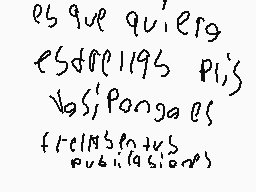 es que quiero
estrellas plis
Vasi Ponga es
trellas en tus
publicasiones